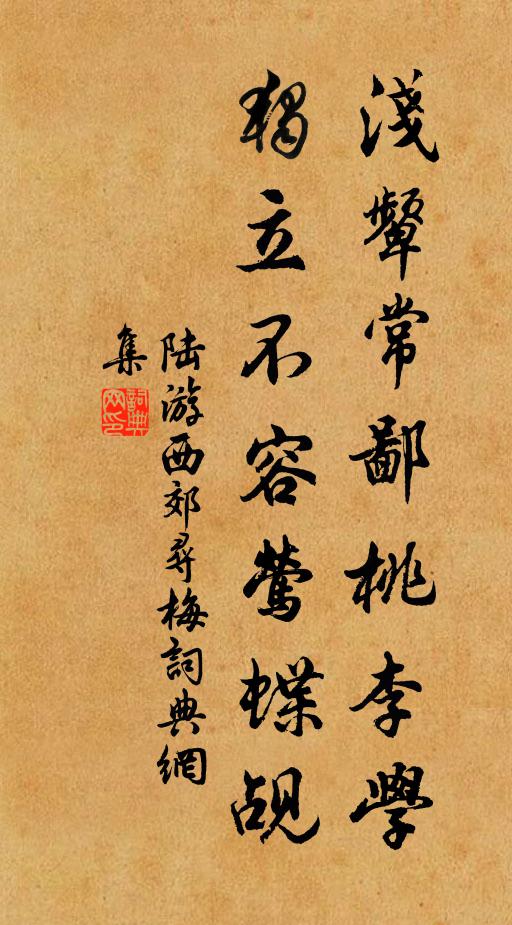 淺顰常鄙桃李學
獨立不容鶯蝶覘
陆游西郊尋梅詞典網
集
詞典
网印